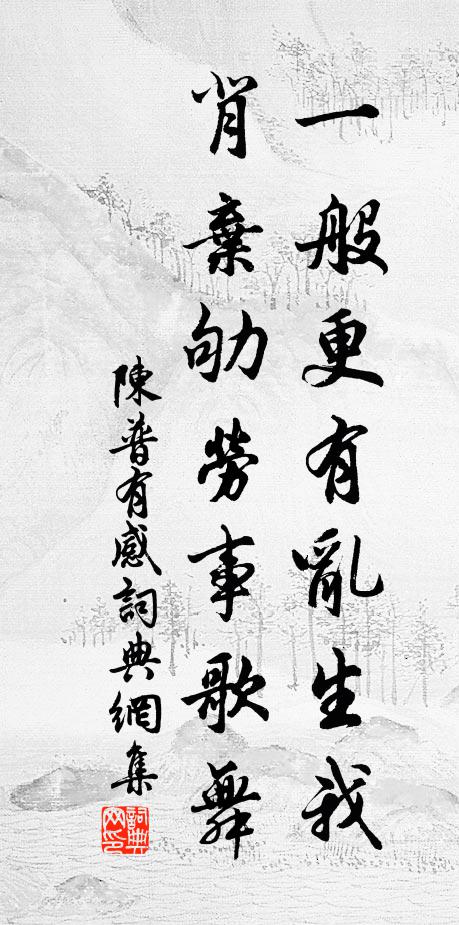 一般更有亂生我
肯棄劬勞事歌舞
陳普有感詞典網集
詞典網印